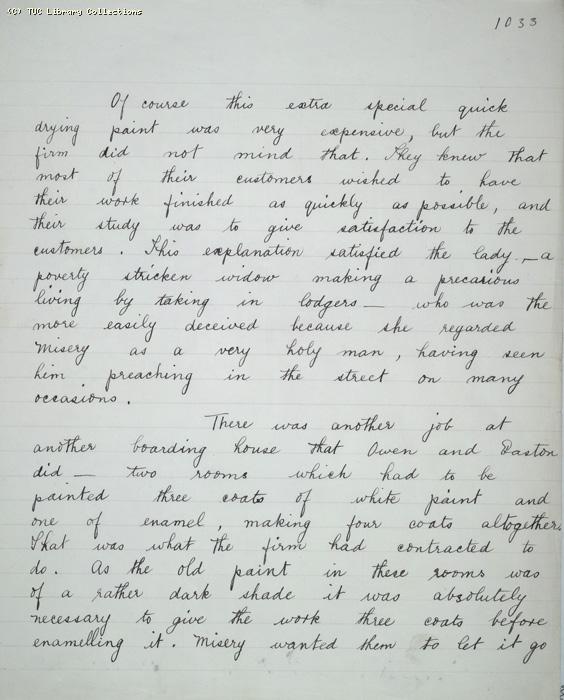 (C) TUC Library Collections
1033
Of course this extra special quick
drying paint was very expensive, but the
firm did not mind that. They knew that
most of their customers wished to have
their work finished as quickly as possible, and
their study was to give satisfaction to the
customers. This explanation satisfied the lady, – a
poverty stricken widow making a precarious
living by taking in lodgers – who was the
more easily deceived because she regarded
Misery as a very holy man, having seen
him preaching in the street on many
occasions.
There was another job at
another boarding house that Owen and Easton
did – two rooms which had to be
painted three coats of white paint and
one of enamel, making four coats altogether.
That was what the firm had contracted to
do. As the old paint in these rooms was
of a rather dark shade it was absolutely
necessary to give the work three coats before
enamelling it. Misery wanted them to let it go